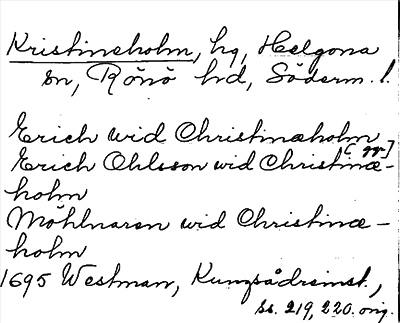 Kristineholm, hg, Helgona
sn, Rönö hd, Söderm. l.
Erich wid Christinæholm
[gg]
Erich Ohlsson wid Christinæ-
holm
Möhlnaren wid Christinæ-
holm
1695 Westman, Kungsådreinst.,
ss. 219, 220. orig.